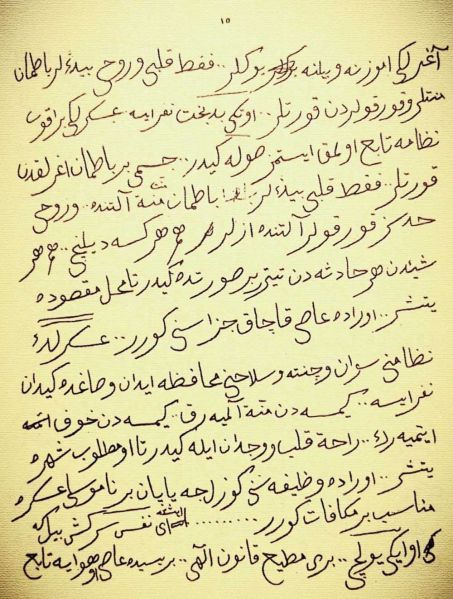 ١٥
آغرلكی اموزنه و بیلنه یوكلر.. فقط قلبی و روحی بیڭلر باطمان
منتلر و قورقولردن قورتلر.. اوتكی بدبخت نفر ایسه عسكرلكی براقوب
نظامه تابع اولمق ایستمز صوله كیدر.. جسمی بر باطمان آغرلقدن
قورتلر.. فقط قلبی بیڭلر باطمان منت آلتنده.. و روحی
حدسز قورقولر آلتنده ازلر هم هركسه دیلنجی.. هم هر
شیئدن هر حادثه دن تیتر بر صورتده كیدر تا محل مقصوده
یتشر.. اوراده عاصی قاچاق جزاسنی كورر.. عسكرلك
نظامنی سوان و چنته و سلاحنی محافظه ایدن و صاغه كیدن
نفر ایسه.. كیمسه دن منت آلمیه رق.. كیمسه دن خوف
ایتمیه رك.. راحت قلب و وجدان ایله كیدر تا او مطلوب شهره
یتشر.. اوراده وظیفه سنی كوزلجه یاپان بر ناموسلی عسكره
مناسب بر مكافات كورر......... ایشته ای نفس سركش بیل كه
او ایكی یولجی.. بری مطیع قانون الهی.. بریسیده عاصی و هوایه تابع